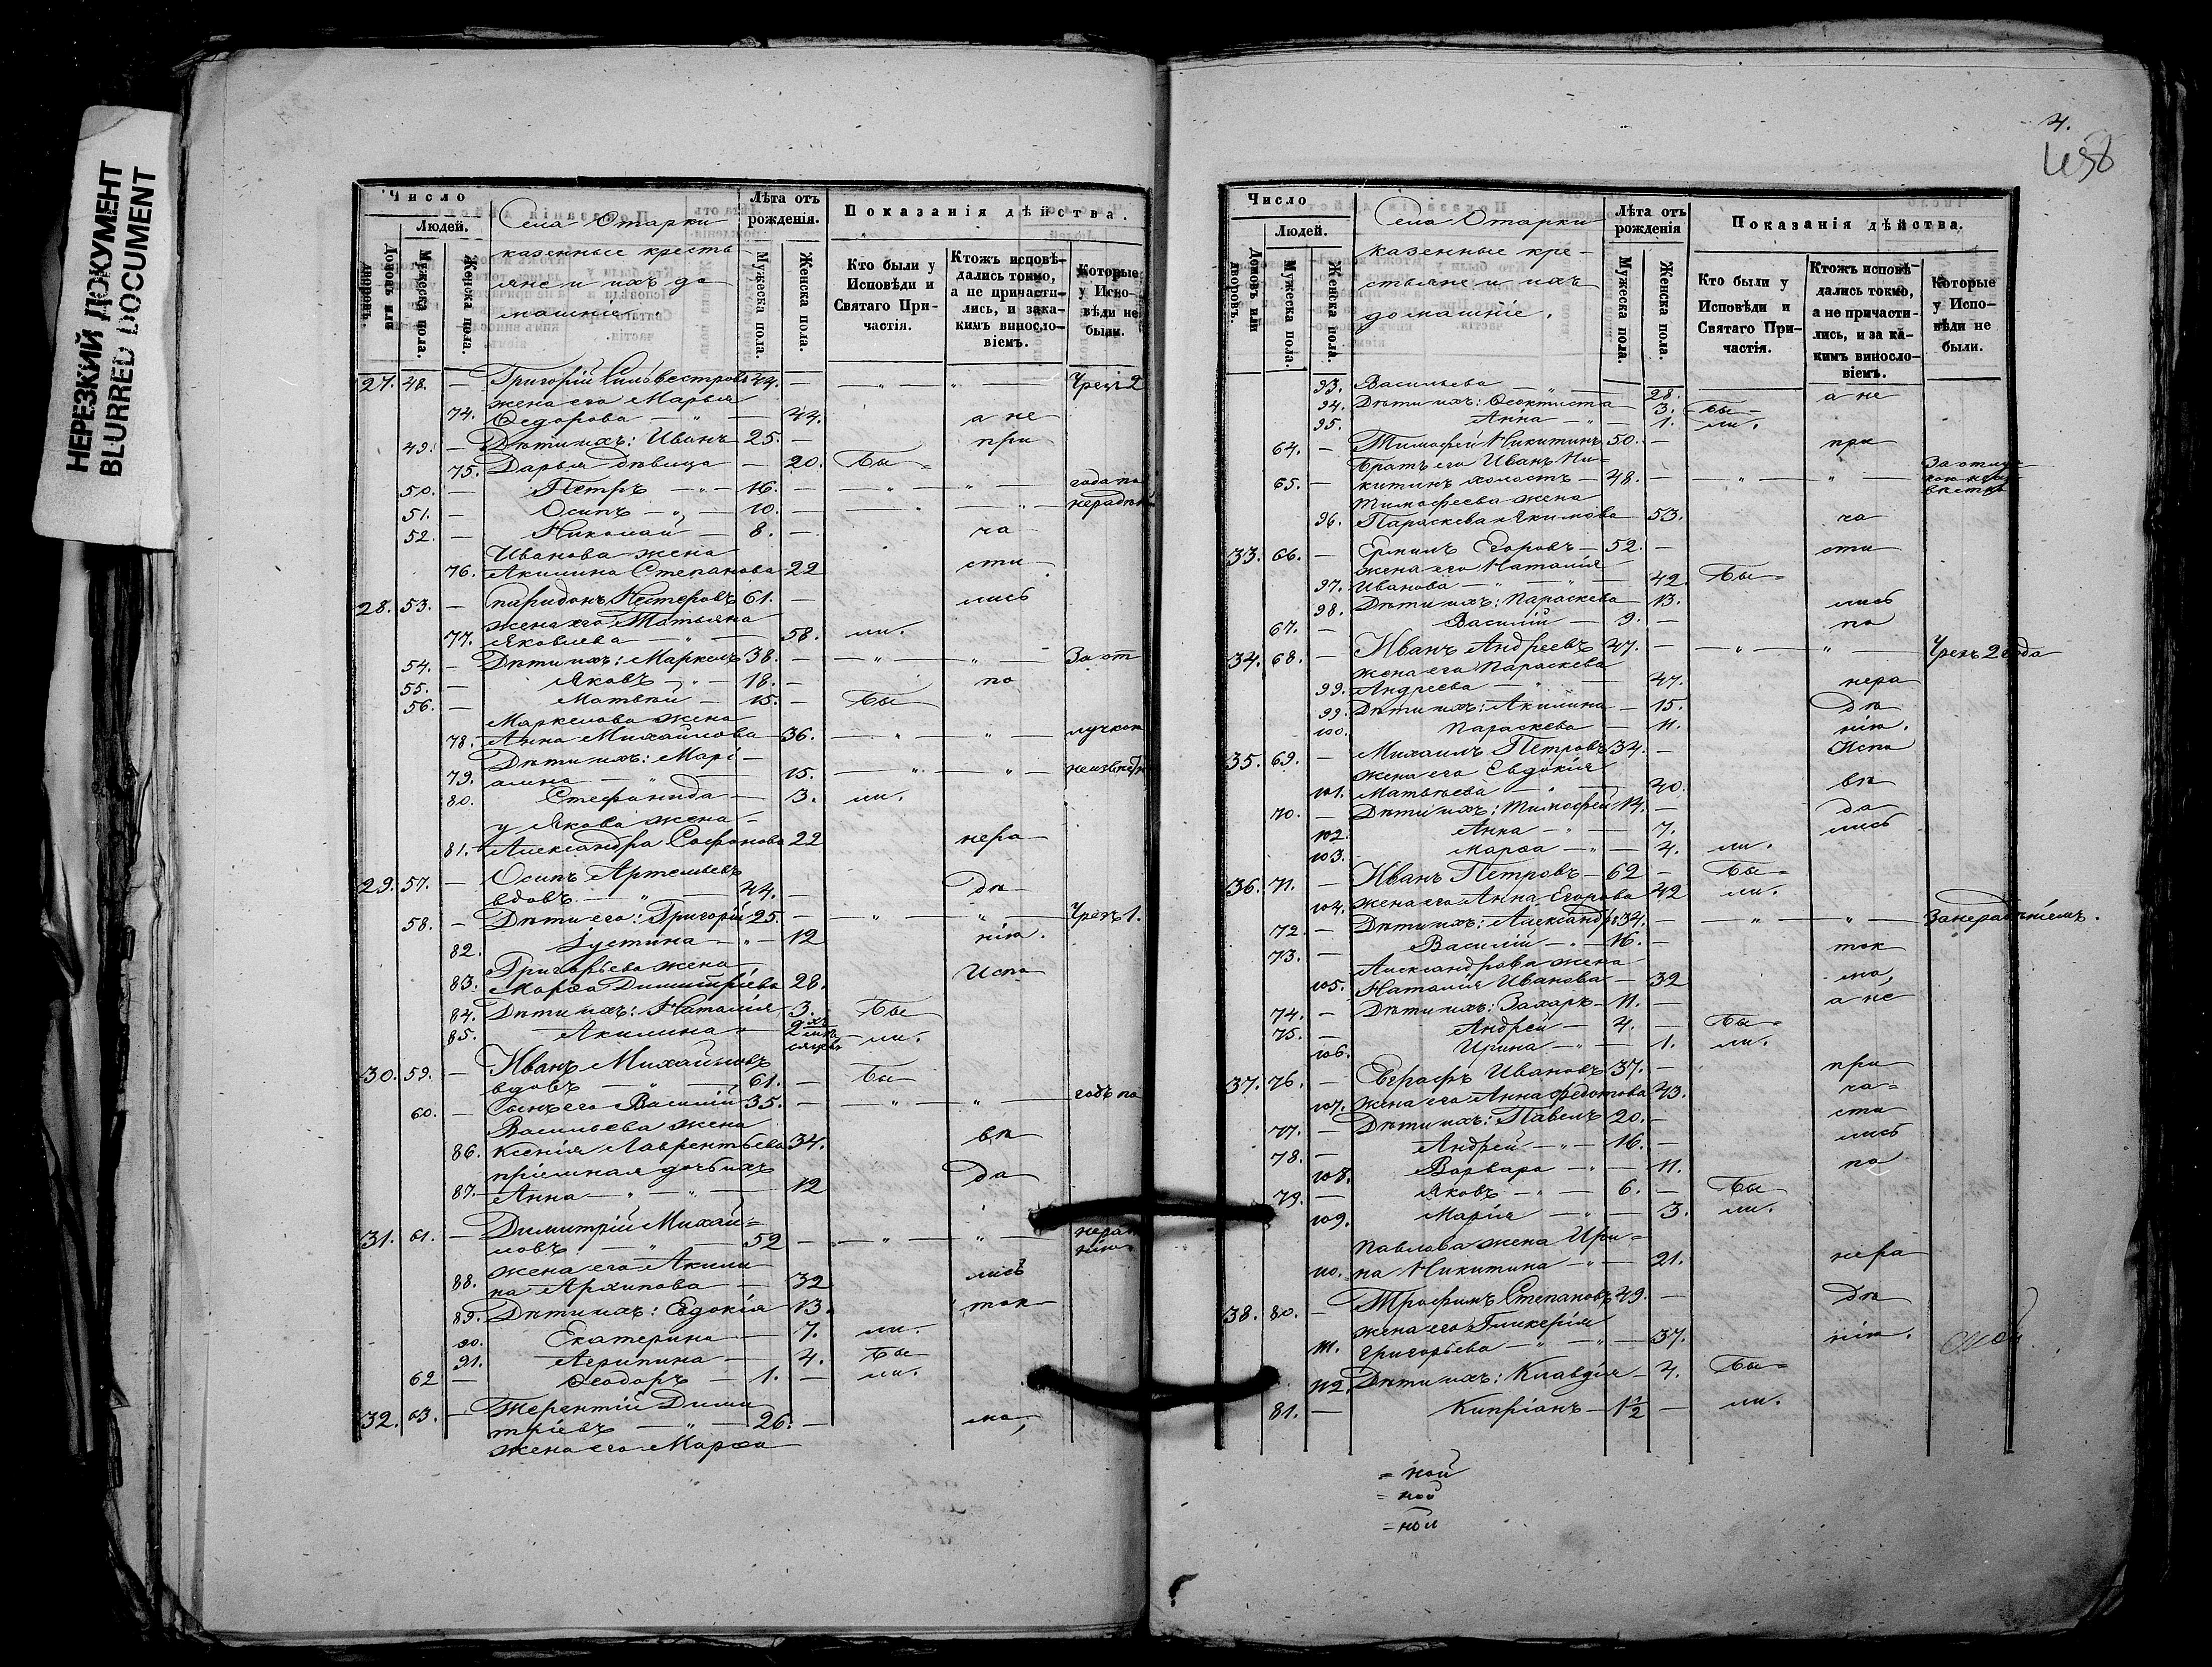 НЕРЕЗКИЙ ДОКУМЕНТ
BLURRED DOCUMENT
Число
Людей.
Домовъ или дворовъ.
Мужеска пола.
Женска пола.
Села Старки
казенные кресть-
яне и ихъ до-
машніе.
Лѣта отъ рожденія.
Мужеска пола.
Женска пола.
Показанія дѣйства.
Кто были у Исповѣди и Святаго Причастія.
Ктожъ исповѣ-
дались токмо,
а не причасти-
лись, и за ка-
кимъ виносло-
віемъ.
Которые
у Испо-
вѣди не
были.
27. 48. — Григорій Сильвестровъ 44. — — " — " — Чрезъ 2
жена его Марья
74. Ѳедорова — " — 44. а не
49. — Дѣти ихъ: Иванъ 25. — при
75. Дарья дѣвица — 20. Бы-
50. — Петръ — " — 16. — — " — " — года по
51. — Осипъ — " — 10. — — " — " — нерадѣнію
52. — Николай — 8. — ча
Иванова жена
76. Акилина Степанова 22 сти
28. 53. — Спиридонъ Нестеровъ 61. — лись
жена его Татьяна
77. Яковлева — " — 58. ли.
54. — Дѣти ихъ: Маркелъ 38. — — " — " — За от
55. — Яковъ — " — 18. — по
56. — Матвѣй — 15. — Бы
Маркелова жена
78. Анна Михайлова 36. — " — " — лучкою
Дѣти ихъ: Марі-
79. амна — " — 15. — " — " — неизвѣстн
80. Стефанида — 3. ли.
у Якова жена-
81. Александра Софонова 22 нера
29. 57. — Осипъ Артемьевъ
вдовъ — " — 44. — дѣ
58. — Дѣти его: Григорій 25. — — " — " — Чрезъ 1.
82. Іустина — " — 12 нію.
Григорьева жена
83. Марѳа Димитріева 28. Испо
84. Дѣти ихъ: Наталія 3. Бы
85. Акилина — 2хъ мѣсяцевъ — ли.
30. 59. — Иванъ Михайловъ
вдовъ — " — 61. — Бы
60. — Сынъ его Василій 35. — — " — " — годъ по
Васильева жена
86. Ксенія Лаврентьева 34. вѣ
пріемная дочь ихъ
87. Анна — " — " — 12 да
31. 61. — Димитрій Михай=
ловъ — " — 52 — — " — " — нерадѣ
нію
жена его Акили
88. на Архипова — 32 лись
89. Дѣти ихъ: Евдокія 13. ток
90. Екатерина — 7. ли.
91. Агрипина — 4. Бы
62 — Ѳеодоръ — 1. — ли.
32. 63. — Терентій Дими
тріевъ — " — 26. — мо,
жена его Марѳа
4.
458
Число
Людей.
Домовъ или дворовъ.
Мужеска пола.
Женска пола.
Села Старки
казенные кре-
стьяне и ихъ
домашніе.
Лѣта отъ рожденія
Мужеска пола.
Женска пола.
Показанія дѣйства.
Кто были у
Исповѣди и
Святаго При-
частія.
Ктожъ исповѣ-
дались токмо,
а не причасти-
лись, и за ка-
кимъ винослo-
віемъ.
Которые
у Испо-
вѣди не
были.
93. Васильева — " — 28. а не
94. Дѣти ихъ: Ѳеоктиста — 3. Бы-
95. Анна — " — 1. ли.
64. — Тимофей Никитинъ 50. — при
Братъ его Иванъ Ни-
65. — китинъ холостъ — 48. — — " — " — За отлуч
кою неиз
вѣстно
Тимофеева жена
96. Параскева Якимова 53. ча
33. 66. — Ермилъ Егоровъ — 52. — сти
жена его Наталія
97. Иванова — " — " — 42. Бы-
98. Дѣти ихъ: Параскева — 13. лись
67. — Василій — 9. — по
34. 68. — Иванъ Андреевъ 47. — — " — " — Чрезъ 2 года
жена его Параскева
99. Андреева — " — 47. нера
99. Дѣти ихъ: Акилина — 15. дѣ
100. Параскева — 11. нію.
35. 69. — Михаилъ Петровъ 34. — Испо
жена его Евдокія
101. Матвѣева — " — 40. вѣ
70. — Дѣти ихъ: Тимофей 14. — да
102. Анна — " — 7. лись
103. Марѳа — " — 4. ли.
36. 71. — Иванъ Петровъ — 62 — Бы=
104. жена его Анна Егорова 42 ли.
72. — Дѣти ихъ: Александръ 34. — — " — " — За нерадѣніемъ.
73. — Василій — " — 16. — ток
Александрова жена-
105. Наталія Иванова — 32 мо,
74. — Дѣти ихъ: Захаръ — 11. — а не
75. — Андрей — 4. — Бы=
106. Ирина — " — 1. ли.
37. 76. — Евграфъ Ивановъ 37. — при
107. жена его Анна Федотова 43. ча=
77. — Дѣти ихъ: Павелъ 20. — сти
78. — Андрей — " — 16. — лись
108. Варвара — " — 11. по
79. — Яковъ — " — 6. — Бы
109. Марія — " — 3. ли.
Павлова жена Ири=
110. на Никитина — " — 21. нера
38. 80. — Трофимъ Степановъ 49. — дѣ
жена его Гликерія
111. Григорьева — " — " — 37. нію.
112. Дѣти ихъ: Клавдія — 4. Бы=
81. — Кипріанъ — 1½ — ли.
= ной
= ной
= ной